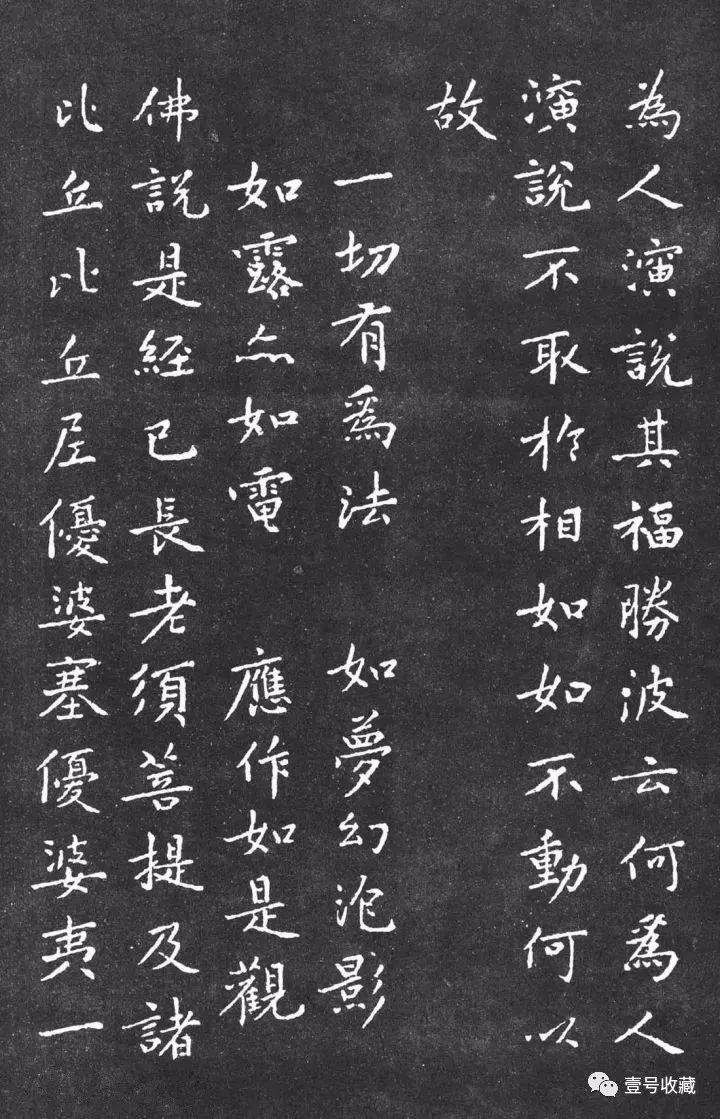 為人演說其福勝波云何為人
演說不取扵相如如不動何以
故
一切有爲法　如夢幻泡影
如露亦如電　應作如是觀
佛說是經已長老須菩提及諸
比丘比丘尼優婆塞優婆夷一
壹号收藏